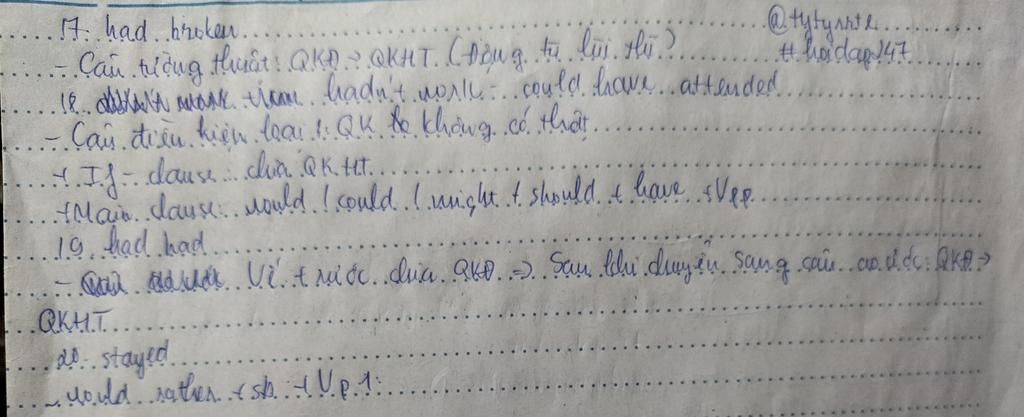 17. had broken @tytynnte
- Câu tường thuật: QKĐ → QKHT (Động từ lùi thì) #hoidap247
18. hadn't work - could have attended
- Câu điều kiện loại : QK không có thật
+ If - clause: chia QKHT
+ Main clause: would / could / might + should + have + Vpp
19. had had
- Vế trước chia QKĐ => Sau khi chuyển sang câu ao ước: QKĐ →
QKHT
20. stayed
- would rather + sb + Vp1: